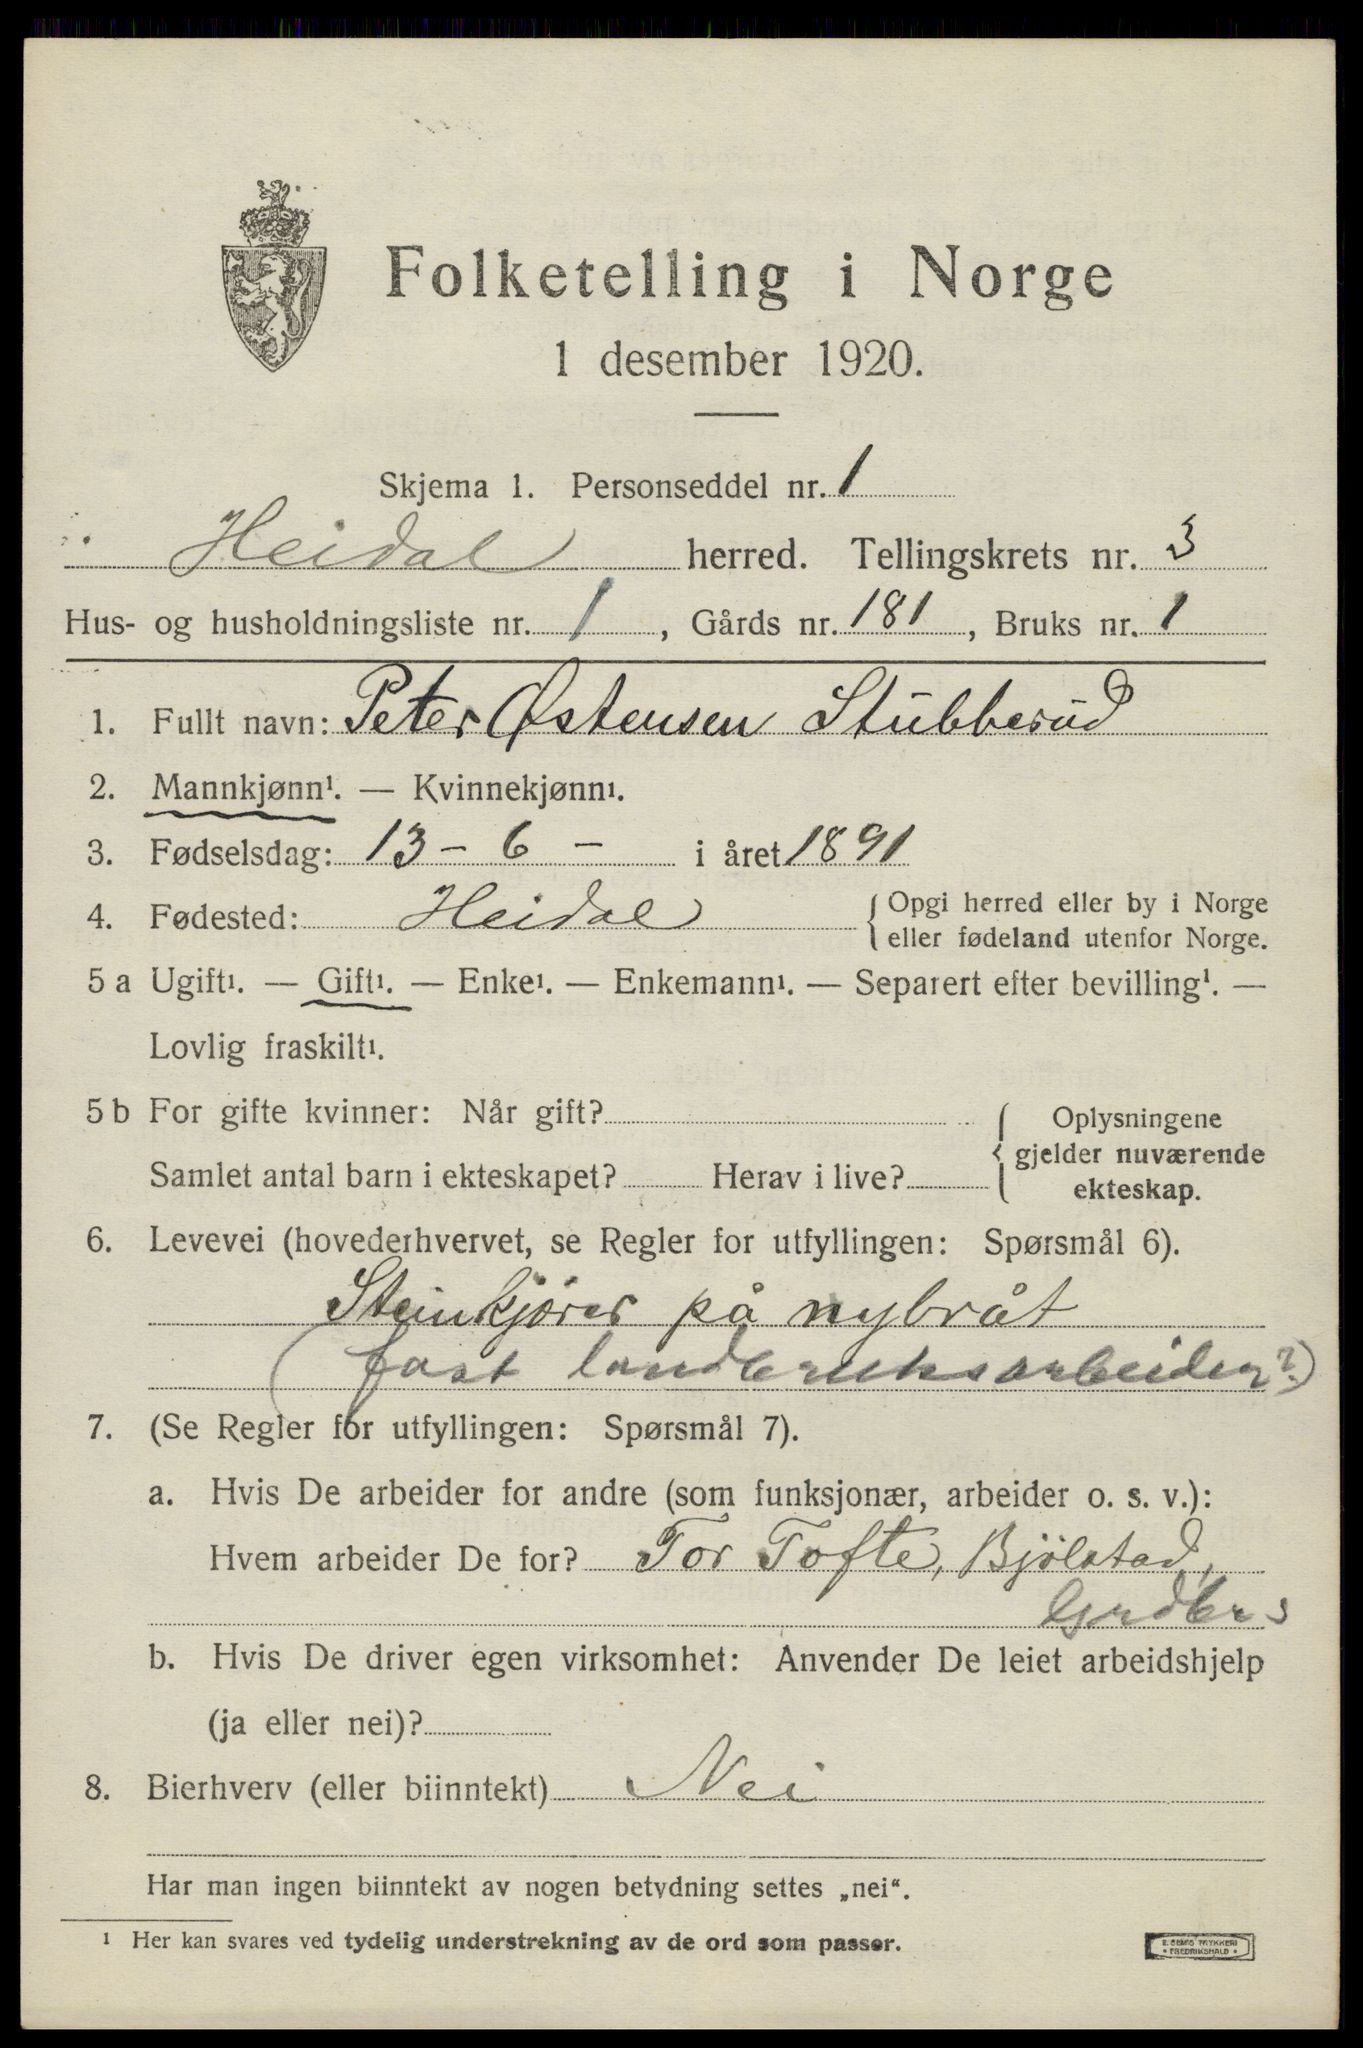 Folketelling i Norge
1 desember 1920.
Skjema 1. Personseddel nr. 1
Heidal herred. Tellingskrets nr. 3
Hus- og husholdningsliste nr. 1, Gårds nr. 181, Bruks nr. 1
1. Fullt navn: Peter Østensen Stubberud
2. Mannkjønn¹. — Kvinnekjønn¹.
3. Fødselsdag: 13 - 6 - i året 1891
4. Fødested: Heidal { Opgi herred eller by i Norge
eller fødeland utenfor Norge.
5 a Ugift¹. — Gift¹. — Enke¹. — Enkemann¹. — Separert efter bevilling¹. —
Lovlig fraskilt¹.
5 b For gifte kvinner: Når gift?
Samlet antal barn i ekteskapet? Herav i live?
{ Oplysningene
gjelder nuværende
ekteskap.
6. Levevei (hovederhvervet, se Regler for utfyllingen: Spørsmål 6).
Steinkjører på nybråt
(fast landbruksarbeider?)
7. (Se Regler for utfyllingen: Spørsmål 7).
a. Hvis De arbeider for andre (som funksjonær, arbeider o. s. v.):
Hvem arbeider De for? Tor Tofte, Bjölstad,
Grdbr
b. Hvis De driver egen virksomhet: Anvender De leiet arbeidshjelp
(ja eller nei)?
8. Bierhverv (eller biinntekt) Nei
Har man ingen biinntekt av nogen betydning settes „nei“.
¹ Her kan svares ved tydelig understrekning av de ord som passer.
E. SEM'S TRYKKERI
• FREDRIKSHALD •